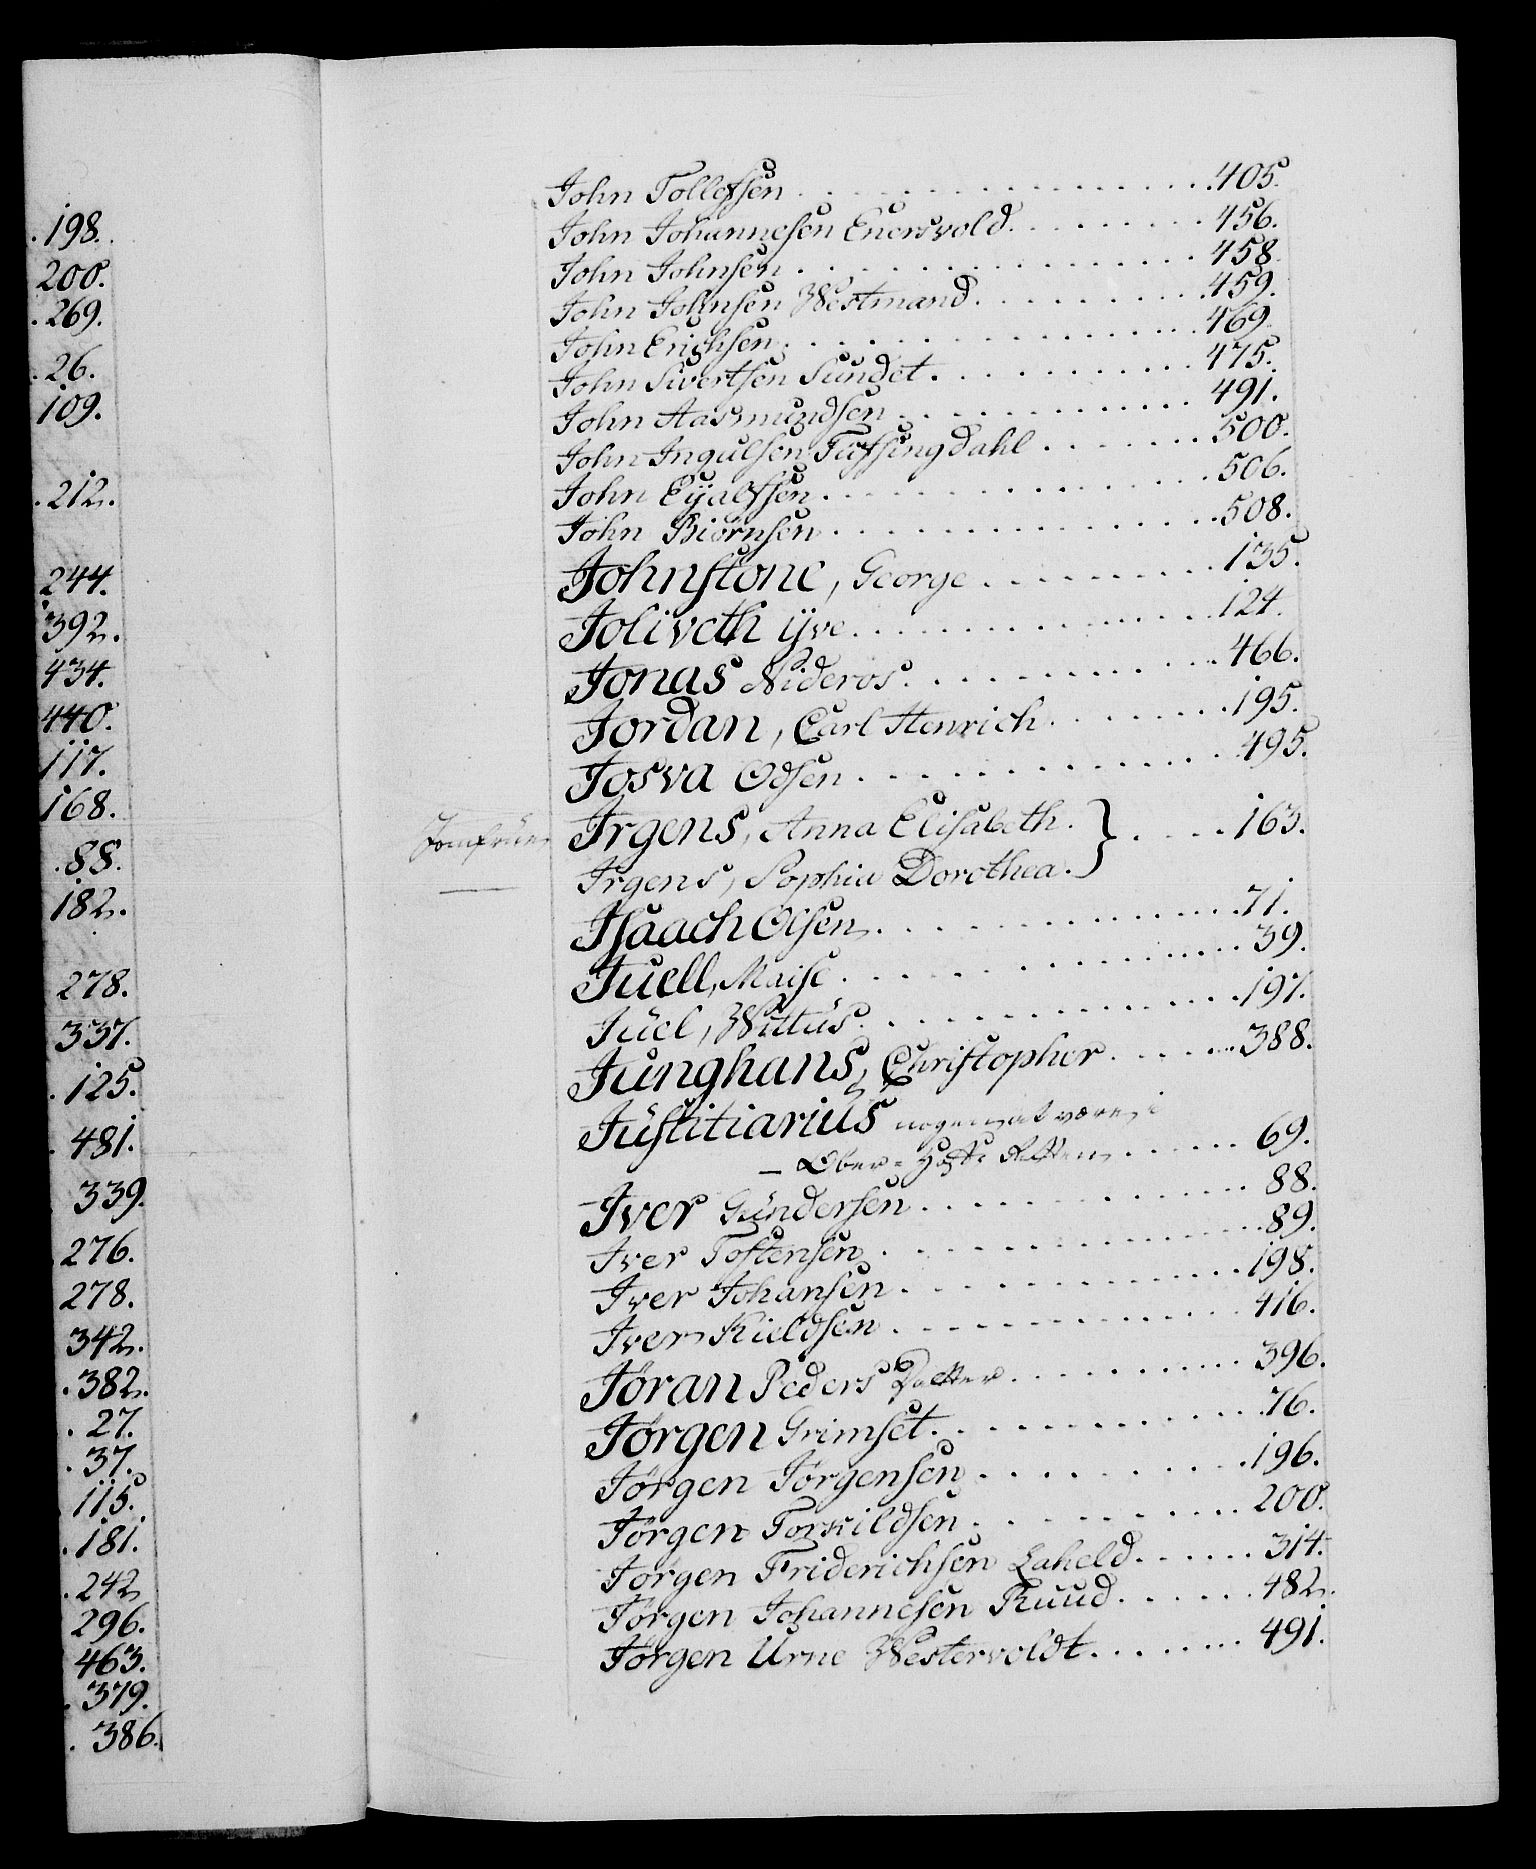 198.
200.
269.
26.
109.
212.
244.
392.
434.
440.
117.
168.
88.
182.
278.
337.
125.
481.
339.
276.
278.
342.
382.
27.
37.
115.
181.
242
296.
463.
379.
386.
John Tollefsen . . . 405.
John Johannesen Enersvold . . . 456.
John Johnsen . . . 458.
John Johnsen Westmand . . . 459.
John Erichsen . . . 469.
John Sivertsen Sundet . . . 475.
John Aasmundsen . . . 491.
John Ingulsen Tufsingdahl . . . 500.
John Eÿalfsen . . . 506.
John Biörnsen . . . 508.
Johnstone, George . . . 135.
Joliveth ÿve . . . 124.
Jonas Nideros . . . 466.
Jordan, Carl Henrich . . . 195.
Josva Odsen . . . 495.
Jomfrüer Irgens, Anna Elisabeth. } . . . 163.
Irgens, Sophia Dorothea.
Isaach Olsen . . . 71.
Juell, Maise . . . 39.
Jüel, Wittüs . . . 197.
Junghans, Christopher . . . 388.
Jüstitiarius nogen at være i
– Ober-Hoff Retten . . . 69.
Iver Gündersen . . . 88.
Iver Tostensen . . . 89.
Iver Johansen . . . 198.
Iver Kieldsen . . . 416.
Jöran Peders Datter . . . 396.
Jörgen Grimset . . . 76.
Jörgen Jörgensen . . . 196.
Jörgen Torkildsen . . . 200.
Jörgen Friderichsen Laheld . . . 314.
Jörgen Johannesen Ruud . . . 482.
Jörgen Urne Westervoldt . . . 491.